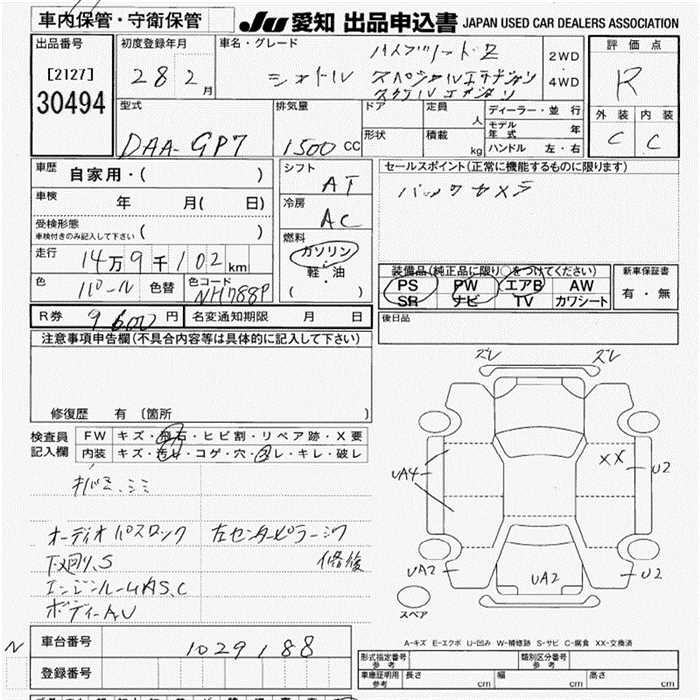 車内保管・守衛保管
JU 愛知 出品申込書 JAPAN USED CAR DEALERS ASSOCIATION
出品番号
[2127]
30494
初度登録年月
28 2月
車名・グレード
ハイブリッドZ
シャトル
2WD
・
4WD
評価点
R
外装 内装
C C
型式
DAA-GP7
排気量
1500 CC
ドア
定員
人
形状
積載
kg
ディーラー・並行
モデル年式 年
ハンドル 左・右
車歴
自家用・( )
車検
年 月( 日)
受検形態
車検付きのみ記入して下さい ( )
走行
14万9千102km
色
パール
色替
色コード
NH788P
シフト
AT
冷房
AC
燃料
ガソリン
・
軽・油
( )
セールスポイント(正常に機能するものに限ります)
バックカメラ
装備品(純正品に限り○をつけてください)
PS PW エアB AW
SR ナビ TV カワシート
新車保証書
有・無
R券 9600円
名変通知期限 月 日
後日品
注意事項申告欄(不具合内容等は具体的に記入して下さい)
修復歴 有 〔箇所 〕
検査員記入欄
FW キズ・飛石・ヒビ割・リペア跡・X要
内装 キズ・汚れ・コゲ・穴・スレ・キレ・破レ
オーディオパスロック
左センターピラーシワ
修復
下廻リ、S
エンジンルームAS、C
ボディーA、U
ズレ ズレ
UA4
XX
U2
UA2
UA2
U2
スペア
A-キズ E-エクボ U-凹み W-補修跡 S-サビ C-腐食 XX-交換済
N
車台番号
1029188
登録番号
形式指定番号
参考
類別区分番号
参考
車庫証明用
参考
長さ cm
幅 cm
高さ cm